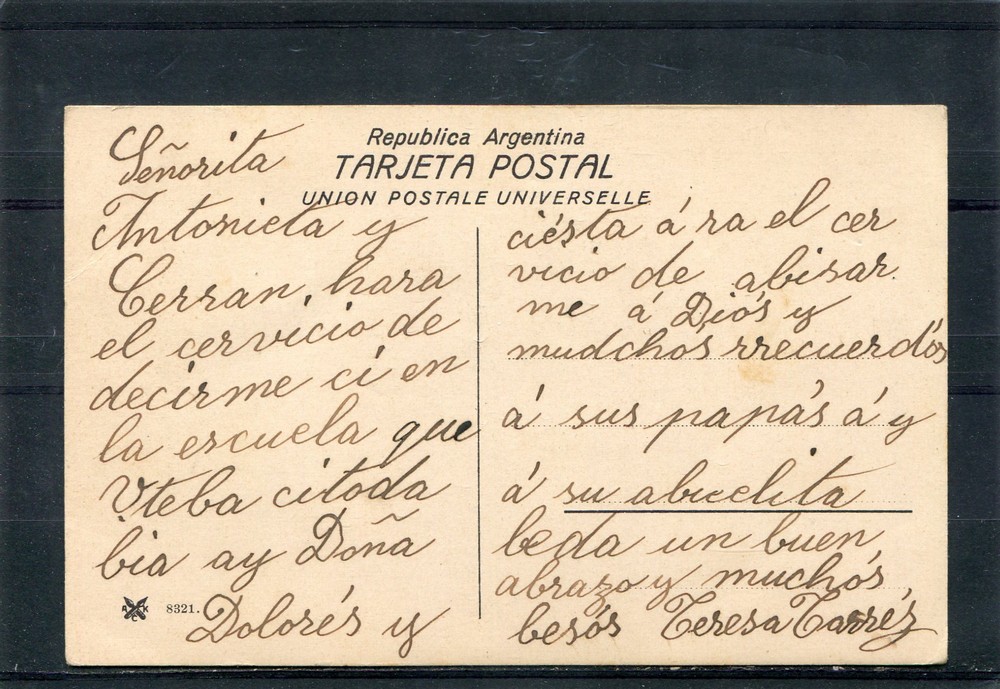 Republica Argentina
TARJETA POSTAL
UNION POSTALE UNIVERSELLE
Señorita
Antonieta y
Cerran, hara
el cervicio de
decirme ci en
la escuela que
Vteba citoda
bia ay Doña
Dolorés y
8321.
ciésta á ra el cer
vicio de abisar.
me á Diós y
mudchos rrecuerdós
á sus papás á y
á su abuelita
beda un buen
abrazo y muchós
besós Teresa Tarréz